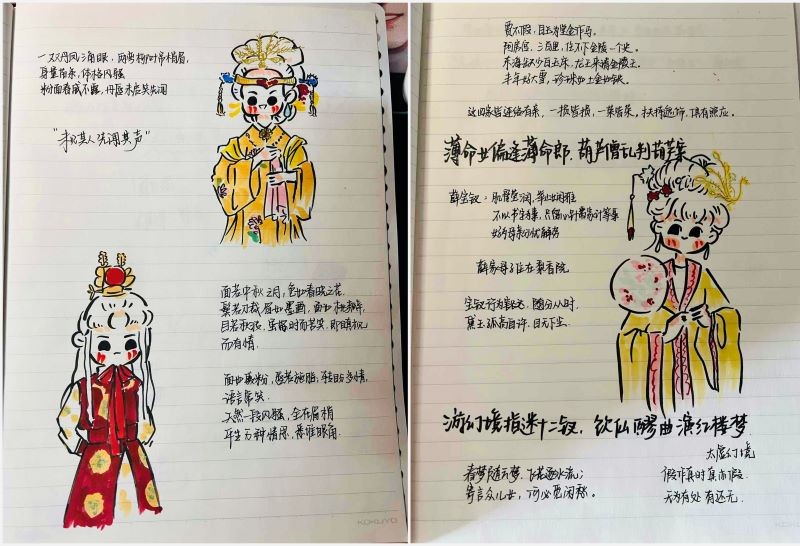 一双丹凤三角眼，两弯柳叶吊梢眉，
身量苗条，体格风骚
粉面含威不露，丹唇未启笑先闻
"未见其人先闻其声"
面若中秋之月，色如春晓之花，
鬓若刀裁，眉如墨画，面如桃瓣，
目若秋波，虽怒时而若笑，即瞋视
而有情。
面如敷粉，唇若施脂，转盼多情，
语言常笑。
天然一段风骚，全在眉梢
平生万种情思，悉堆眼角.
KOKUYO
贾不假，白玉为堂金作马。
阿房宫，三百里，住不下金陵一个史。
东海缺少白玉床，龙王来请金陵王。
丰年好大雪，珍珠如土金如铁。
这四家皆连络有亲，一损皆损，一荣皆荣，扶持遮饰，俱有照应。
薄命女偏逢薄命郎，葫芦僧乱判葫芦案
薛宝钗：肌骨莹润，举止娴雅
不以书字为事，只留心针黹家计等事
好为母亲分忧解劳
薛家母子住在梨香院
宝钗行为豁达，随分从时，
黛玉孤高自许，目无下尘，
游幻境指迷十二钗，饮仙醪曲演红楼梦
太虚幻境
春梦随云散，飞花逐水流；
寄言众儿女，何必觅闲愁。
假作真时真亦假
无为有处有还无.
KOKUYO